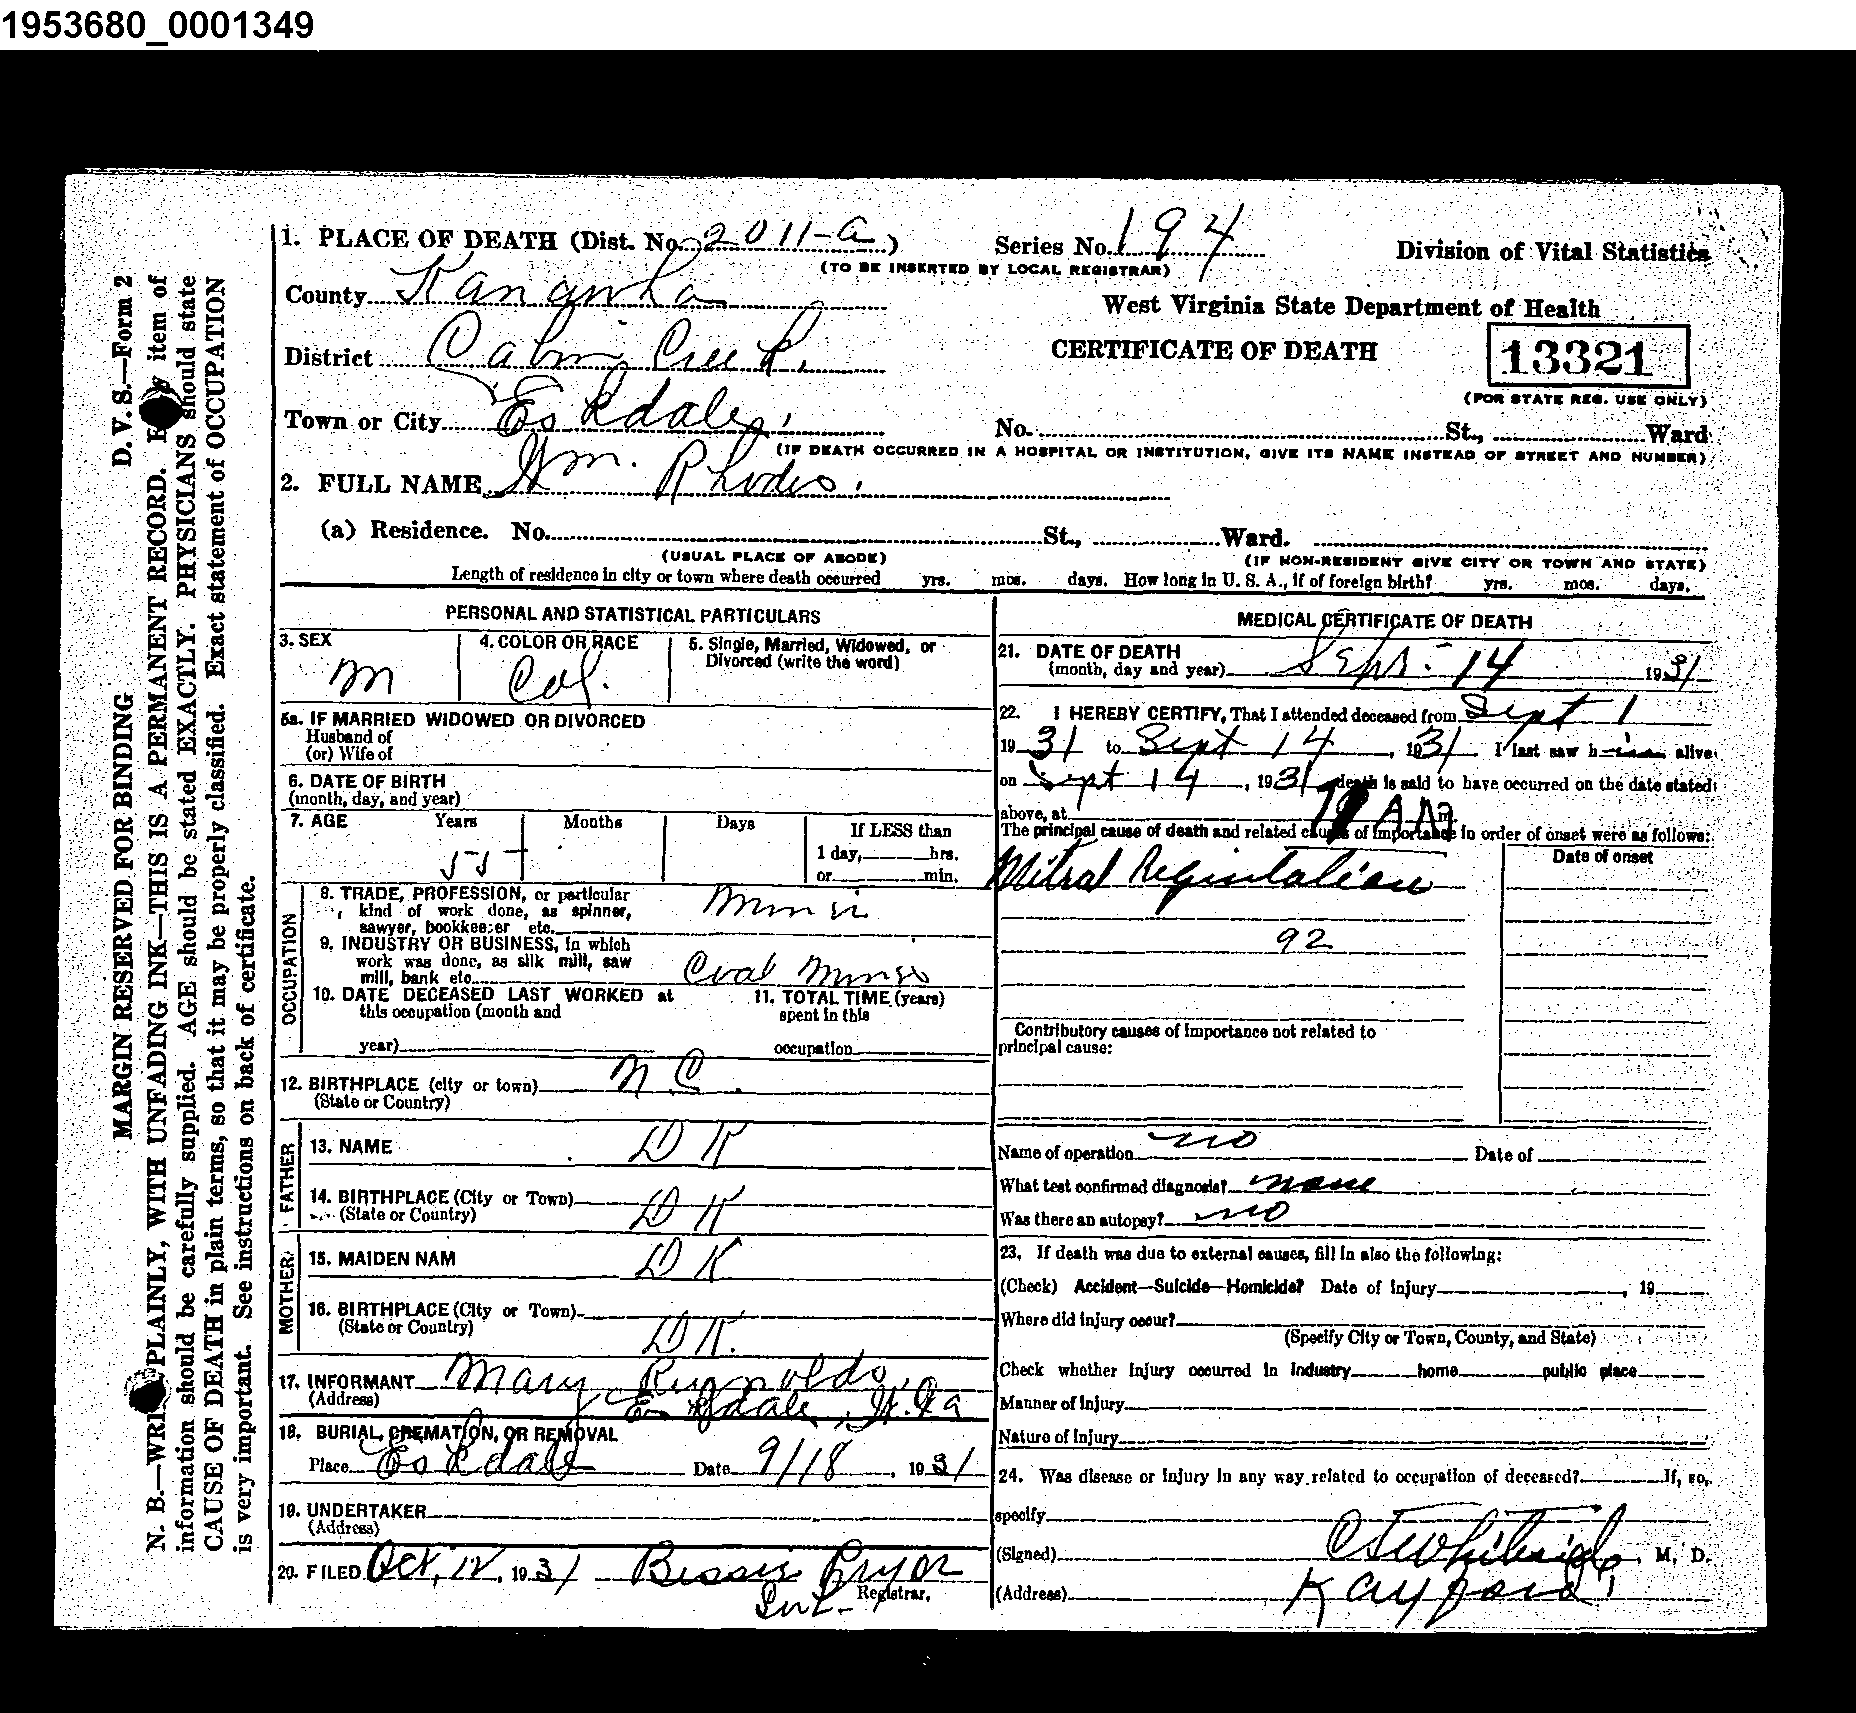 1953680_0001349
D. V. S.—Form 2
MARGIN RESERVED FOR BINDING
N. B.—WRITE PLAINLY, WITH UNFADING INK—THIS IS A PERMANENT RECORD. Every item of
information should be carefully supplied. AGE should be stated EXACTLY. PHYSICIANS should state
CAUSE OF DEATH in plain terms, so that it may be properly classified. Exact statement of OCCUPATION
is very important. See instructions on back of certificate.
1. PLACE OF DEATH (Dist. No. 2011-a) Series No. 194 Division of Vital Statistics
(TO BE INSERTED BY LOCAL REGISTRAR)
County Kanawha
West Virginia State Department of Health
District Cabin Creek,
CERTIFICATE OF DEATH 13321
(FOR STATE REG. USE ONLY)
Town or City Eskdale, No. St., Ward
(IF DEATH OCCURRED IN A HOSPITAL OR INSTITUTION, GIVE ITS NAME INSTEAD OF STREET AND NUMBER)
2. FULL NAME Wm. Rhodes.
(a) Residence. No. St., Ward.
(USUAL PLACE OF ABODE) (IF NON-RESIDENT GIVE CITY OR TOWN AND STATE)
Length of residence in city or town where death occurred yrs. mos. days. How long in U. S. A., if of foreign birth? yrs. mos. days.
PERSONAL AND STATISTICAL PARTICULARS
3. SEX 4. COLOR OR RACE 5. Single, Married, Widowed, or
Divorced (write the word)
M Col.
5a. IF MARRIED WIDOWED OR DIVORCED
Husband of
(or) Wife of
6. DATE OF BIRTH
(month, day, and year)
7. AGE Years Months Days If LESS than
1 day, hrs.
55 or min.
OCCUPATION
8. TRADE, PROFESSION, or particular
kind of work done, as spinner,
sawyer, bookkeeper etc. Miner
9. INDUSTRY OR BUSINESS, in which
work was done, as silk mill, saw
mill, bank etc. Coal Mines
10. DATE DECEASED LAST WORKED at 11. TOTAL TIME (years)
this occupation (month and spent in this
year) occupation
12. BIRTHPLACE (city or town) N C.
(State or Country)
FATHER
13. NAME D K
14. BIRTHPLACE (City or Town)
(State or Country) D K
MOTHER
15. MAIDEN NAM D K
16. BIRTHPLACE (City or Town)
(State or Country) D K.
17. INFORMANT Mary Reynolds,
(Address) Eskdale, W. Va
18. BURIAL, CREMATION, OR REMOVAL
Place Eskdale Date 9/18, 1931
19. UNDERTAKER
(Address)
20. FILED Oct, 12, 1931 Bessie Pryor
Registrar.
MEDICAL CERTIFICATE OF DEATH
21. DATE OF DEATH
(month, day and year) Sept. 14 1931
22. I HEREBY CERTIFY, That I attended deceased from Sept 1
1931 to Sept 14, 1931 I last saw him alive
on Sept 14, 1931 death is said to have occurred on the date stated
above, at AM m.
The principal cause of death and related causes of importance in order of onset were as follows:
Date of onset
Mitral Regurtalion
92
Contributory causes of importance not related to
principal cause:
Name of operation no Date of
What test confirmed diagnosis? none
Was there an autopsy? no
23. If death was due to external causes, fill in also the following:
(Check) Accident—Suicide—Homicide? Date of injury , 19
Where did injury occur?
(Specify City or Town, County, and State)
Check whether injury occurred in industry home public place
Manner of Injury
Nature of Injury
24. Was disease or injury in any way related to occupation of deceased? If, so,
specify
(Signed) M, D.
(Address) Kayford,